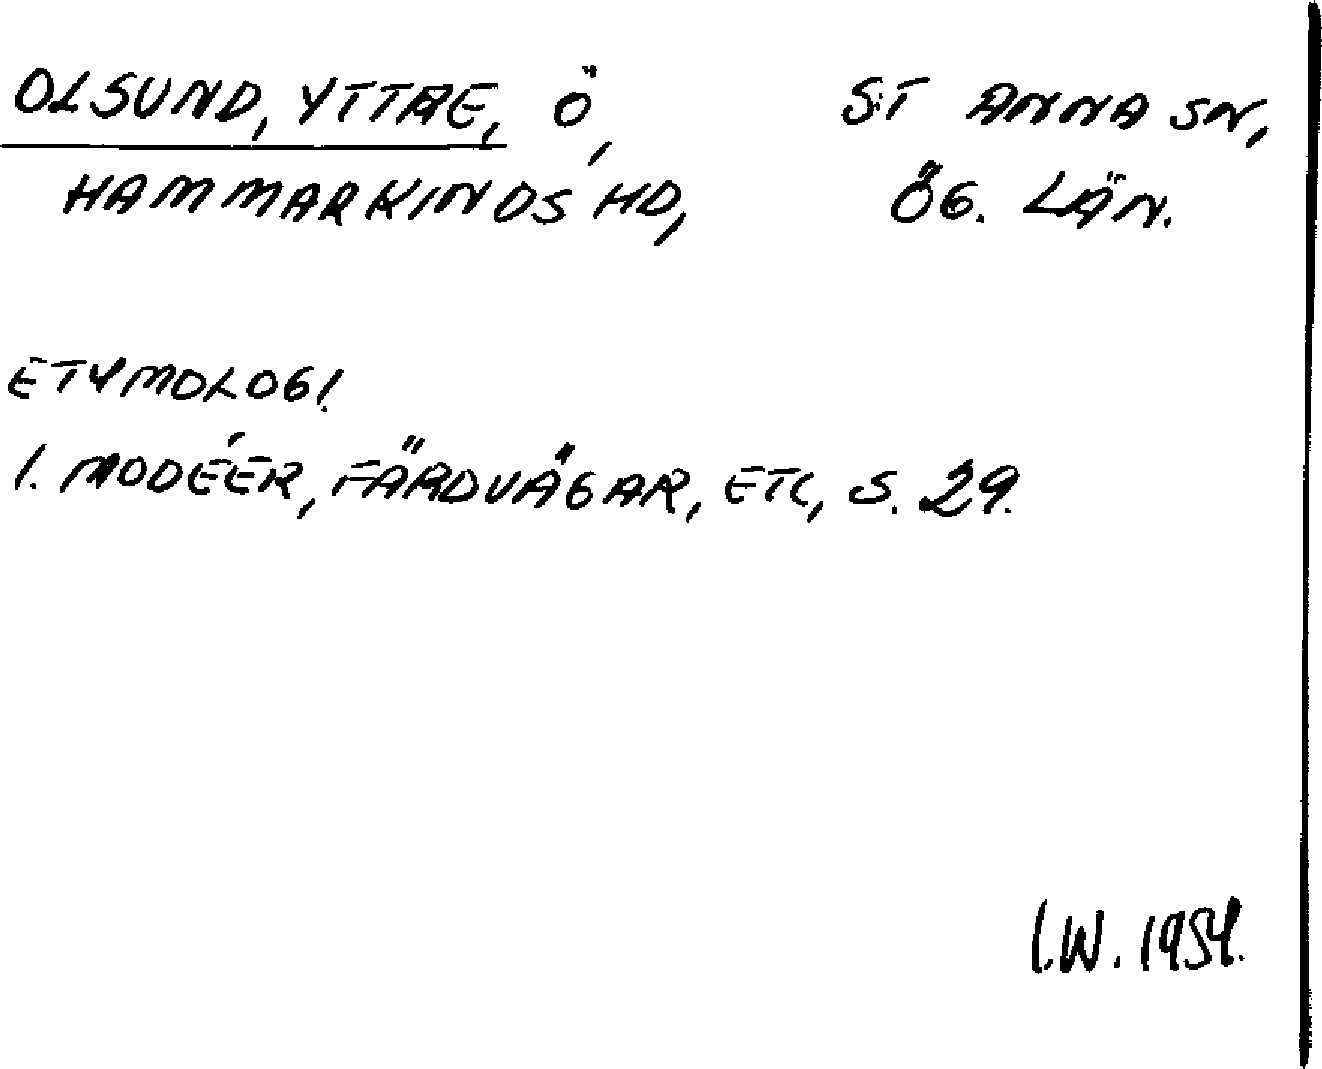 OLSUND, YTTRE, Ö, ST ANNA SN,
HAMMARKINDS HD, ÖG. LÄN.
ETYMOLOGI
I. MODÉER, FÄRDVÄGAR, ETC, S. 29.
I.W. 1954.